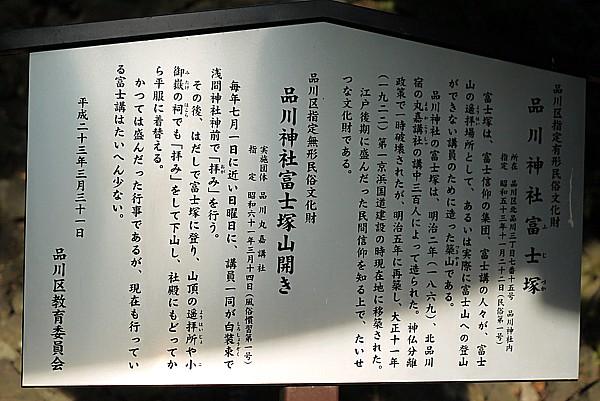 品川区指定有形民俗文化財
品川神社富士塚
所在 品川区北品川三丁目七番十五号 品川神社内
指定 昭和五十三年十一月二十二日(民俗第一号)
富士塚は、富士信仰の集団、富士講の人々が、富士
山の遥拝場所として、あるいは実際に富士山への登山
ができない講員のために造った築山である。
品川神社の富士塚は、明治二年(一八六九)、北品川
宿の丸嘉講社の講中三百人によって造られた。神仏分離
政策で一時破壊されたが、明治五年に再築し、大正十一年
(一九二二)第一京浜国道建設の時現在地に移築された。
江戸後期に盛んだった民間信仰を知る上で、たいせ
つな文化財である。
品川区指定無形民俗文化財
品川神社富士塚山開き
実施団体 品川丸嘉講社
指定 昭和六十一年三月十四日(風俗慣習第一号)
毎年七月一日に近い日曜日に、講員一同が白装束で
浅間神社神前で「拝み」を行う。
その後、はだしで富士塚に登り、山頂の遥拝所や小
御嶽の祠でも「拝み」をして下山し、社殿にもどってか
ら平服に着替える。
かつては盛んだった行事であるが、現在も行ってい
る富士講はたいへん少ない。
平成二十三年三月三十一日
品川区教育委員会